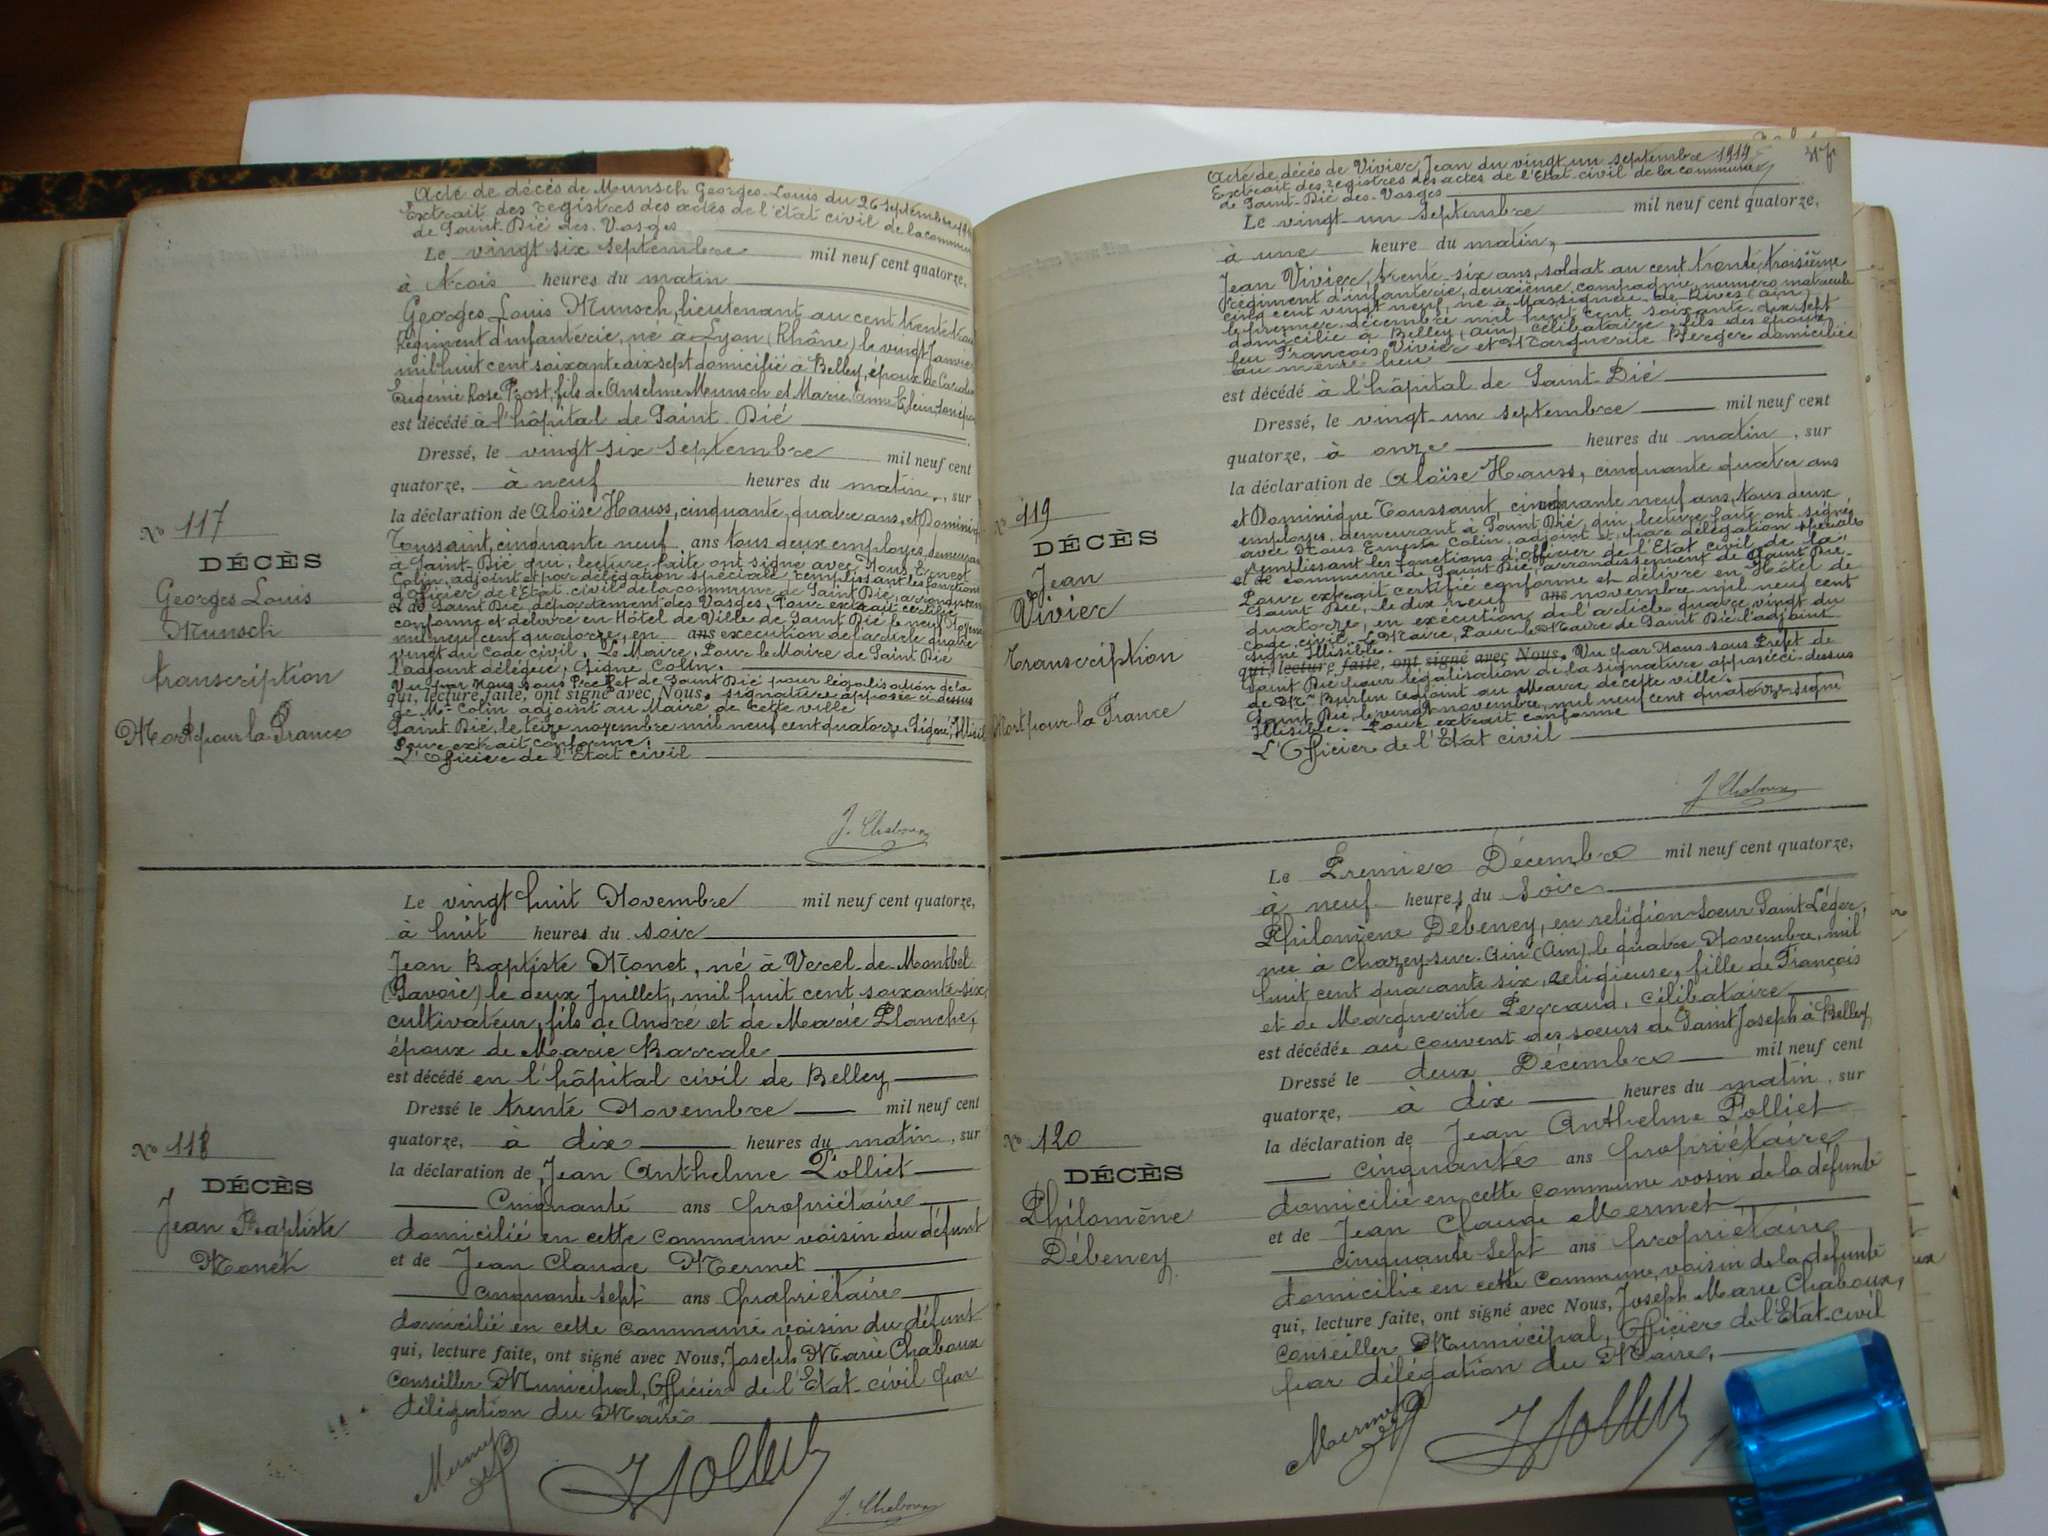 Acte de décès de Munsch Georges-Louis du 26 septembre
Extrait des registres des actes de l'état civil de la commune
de Saint-Dié des Vosges
Le vingt six septembre mil neuf cent quatorze,
à trois heures du matin
Georges Louis Munsch, lieutenant au cent trente
Régiment d'infanterie, né à Lyon (Rhône) le vingt Janvier
mil huit cent soixante dix sept domicilié à Belley, époux de
Eugénie Rose Prost, fils de Anselme Munsch et Marie Anne
est décédé à l'hôpital de Saint Dié
Dressé, le vingt six septembre mil neuf cent
quatorze, à neuf heures du matin, sur
la déclaration de Aloïse Hauss, cinquante quatre ans, et
Toussaint, cinquante neuf ans tous deux employés,
à Saint-Dié qui, lecture faite ont signé avec Nous, Ernest
Colin, adjoint et par délégation spéciale remplissant les fonctions
d'officier de l'Etat civil de la commune de Saint Dié,
et de Saint Dié, département des Vosges, Pour extrait certifié
conforme et délivré en Hôtel de Ville de Saint Dié le neuf
mil neuf cent quatorze, en ans exécution de l'article quatre
vingt du Code civil. Le Maire, Pour le Maire de Saint Dié
l'adjoint délégué, Signé Colin.
Vu par Nous sous Préfet de Saint Dié pour légalisation de la
qui, lecture faite, ont signé avec Nous, signature apposée ci dessus
de Mr Colin adjoint au Maire de cette ville
Saint Dié, le treize novembre mil neuf cent quatorze. Signé,
Pour extrait conforme.
L'Officier de l'Etat civil
J. Chaboux
No 117
DÉCÈS
Georges Louis
Munsch
transcription
Mort pour la France
Le vingt huit Novembre mil neuf cent quatorze,
à huit heures du soir
Jean Baptiste Monet, né à Verel-de-Montbel
(Savoie) le deux Juillet, mil huit cent soixante-six,
cultivateur, fils de André et de Marie Planche,
époux de Marie Barrale
est décédé en l'hôpital civil de Belley
Dressé le trente Novembre mil neuf cent
quatorze, à dix heures du matin, sur
la déclaration de Jean Anthelme Folliet
Cinquante ans propriétaire
domicilié en cette commune voisin du défunt
et de Jean Claude Mermet
cinquante sept ans propriétaire
domicilié en cette commune voisin du défunt
qui, lecture faite, ont signé avec Nous, Joseph Marie Chaboux
Conseiller Municipal, Officier de l'Etat-civil par
délégation du Maire
Mermet
J. Chaboux
No 118
DÉCÈS
Jean Baptiste
Monet
Acte de décès de Vivier, Jean du vingt un septembre 1914
Extrait des registres des actes de l'Etat-civil de la commune
de Saint-Dié-des-Vosges
Le vingt-un septembre mil neuf cent quatorze,
à une heure du matin,
Jean Vivier, trente-six ans, soldat au cent trente troisième
régiment d'infanterie, deuxième compagnie, numéro matricule
cinq cent vingt neuf, né à Massignieu-de-Rives (Ain)
le premier décembre mil huit cent soixante dix sept
domicilié à Belley (Ain) célibataire, fils des époux
feu François Vivier et Marguerite Berger domiciliée
au même lieu
est décédé à l'hôpital de Saint-Dié
Dressé, le vingt-un septembre mil neuf cent
quatorze, à onze heures du matin, sur
la déclaration de Aloïse Hauss, cinquante quatre ans
et Dominique Toussaint, cinquante neuf ans, tous deux
employés, demeurant à Saint Dié, qui, lecture faite ont signé
avec Nous Ernest Colin, adjoint et par délégation spéciale
remplissant les fonctions d'Officier de l'Etat Civil de la
et de commune de Saint Dié, arrondissement de Saint Dié.
Pour extrait certifié conforme et délivré en Hôtel de
Saint Dié, le dix neuf ans novembre mil neuf cent
quatorze, en exécution de l'article quatre vingt du
Code civil. Le Maire, Pour le Maire de Saint Dié l'adjoint
signé Illisible.
qui, lecture faite, ont signé avec Nous. Vu par Nous sous Préfet de
Saint Dié pour légalisation de la signature apposée ci-dessus
de Mr Burlin adjoint au Maire de cette ville.
Saint Dié, le vingt novembre, mil neuf cent quatorze signé
Illisible. Pour extrait conforme
L'Officier de l'Etat civil
J. Chaboux
No 119
DÉCÈS
Jean
Vivier
Transcription
Mort pour la France
Le Premier Décembre mil neuf cent quatorze,
à neuf heures du soir
Philomène Débeney, en religion soeur Saint Léger,
née à Chazey-sur-Ain (Ain) le quatre Novembre, mil
huit cent quarante six, religieuse, fille de François
et de Marguerite Perraud, célibataire
est décédée au couvent des soeurs de Saint Joseph à Belley
Dressé le deux Décembre mil neuf cent
quatorze, à dix heures du matin, sur
la déclaration de Jean Anthelme Folliet
cinquante ans propriétaire
domicilié en cette commune voisin de la défunte
et de Jean Claude Mermet
cinquante sept ans propriétaire
domicilié en cette commune, voisin de la défunte
qui, lecture faite, ont signé avec Nous, Joseph Marie Chaboux,
Conseiller Municipal, Officier de l'Etat-civil
par délégation du Maire,
Mermet
No 120
DÉCÈS
Philomène
Débeney